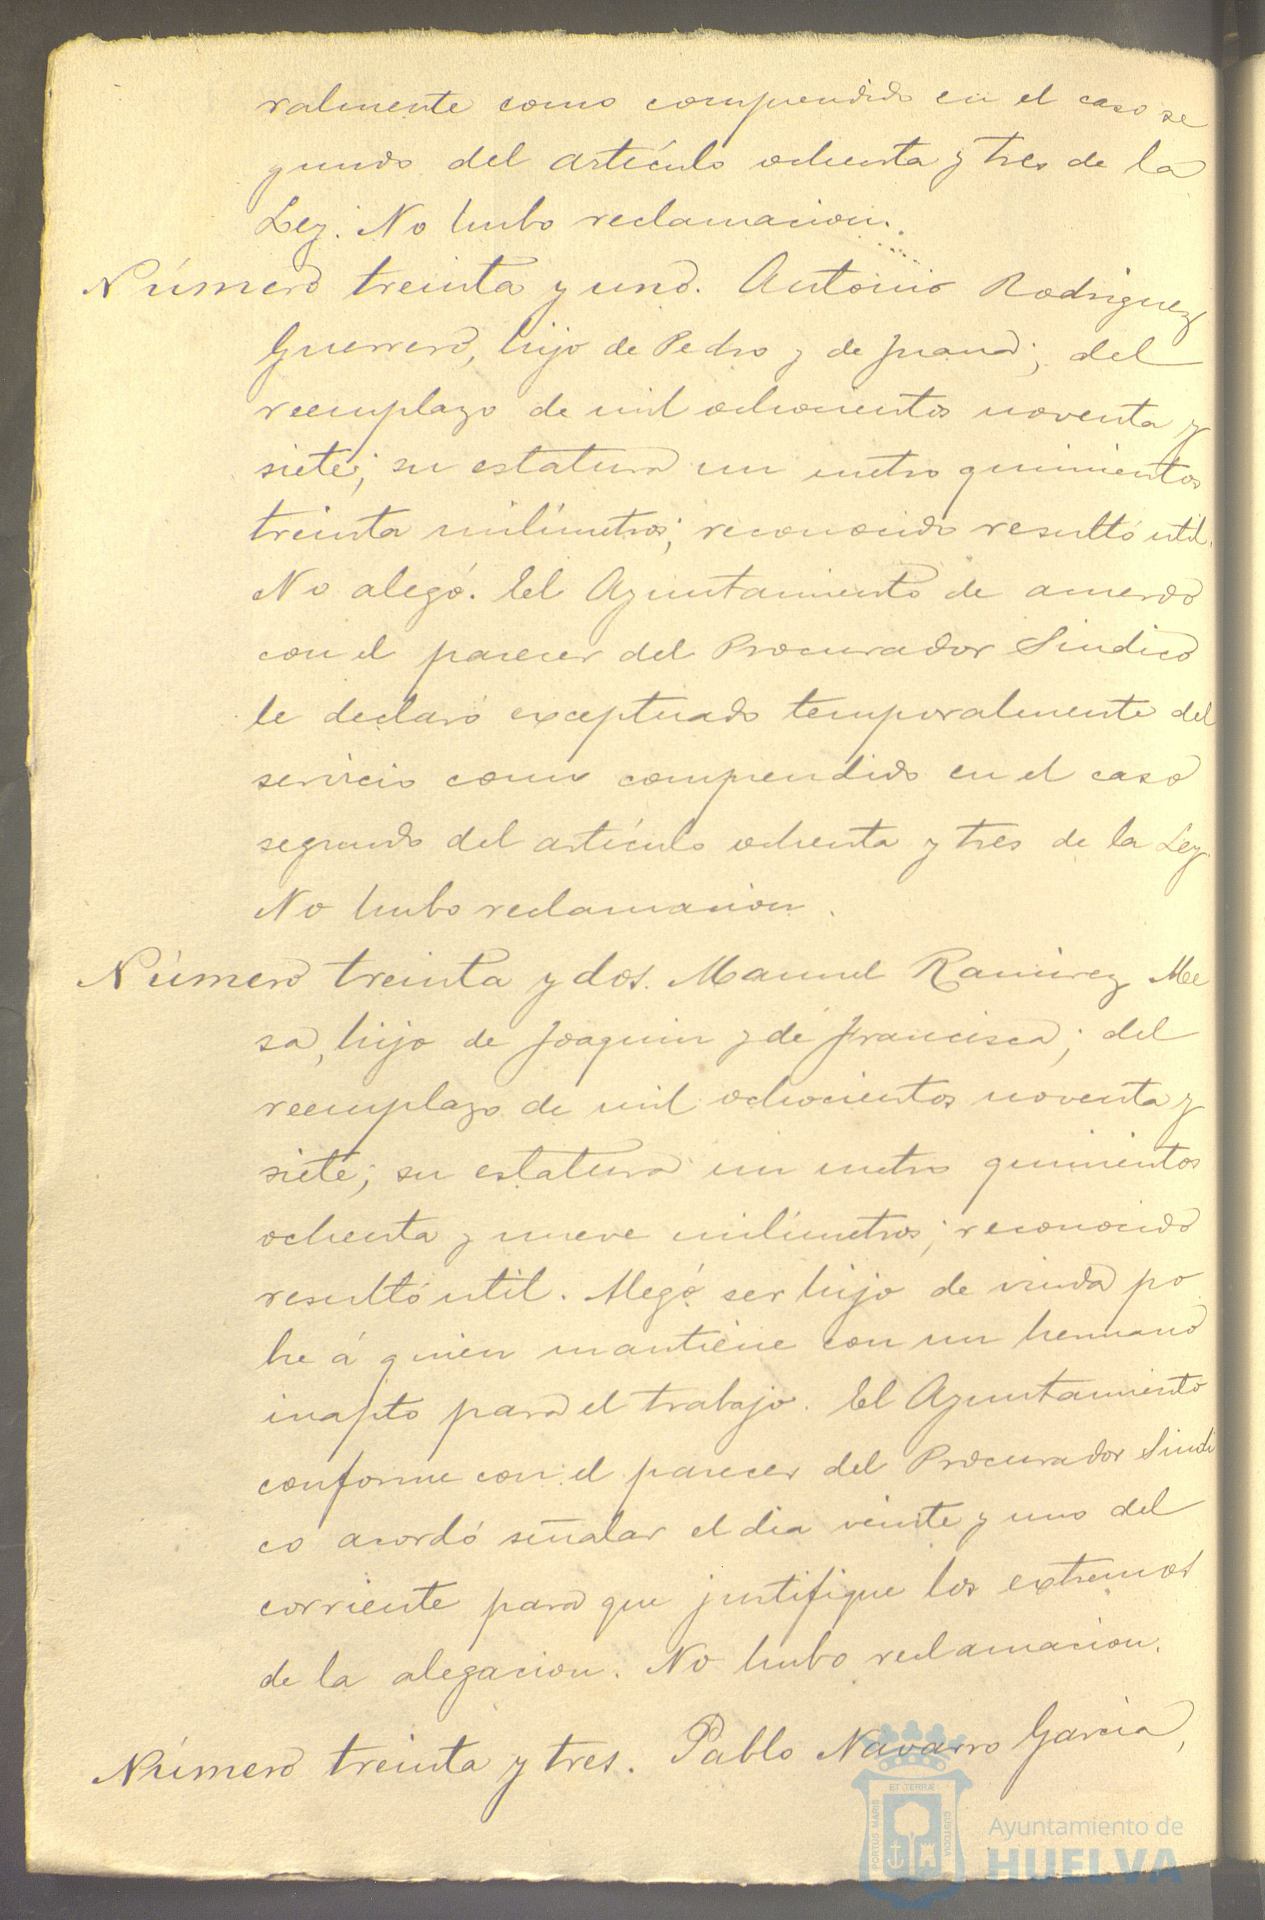 ralmente como comprendido en el caso se
gundo del artículo ochenta y tres de la
Ley. No hubo reclamacion.
Número treinta y uno. Antonio Rodriguez
Guerrero, hijo de Pedro y de Juana; del
reemplazo de mil ochocientos noventa y
siete; su estatura un metro quinientos
treinta milímetros; reconocido resultó util.
No alegó. El Ayuntamiento de acuerdo
con el parecer del Procurador Sindico
le declaró exceptuado temporalmente del
servicio como comprendido en el caso
segundo del artículo ochenta y tres de la Ley.
No hubo reclamacion.
Número treinta y dos. Manuel Ramirez Me
sa, hijo de Joaquin y de Francisca; del
reemplazo de mil ochocientos noventa y
siete; su estatura un metro quinientos
ochenta y nueve milímetros; reconocido
resultó util. Alegó ser hijo de viuda po
bre á quien mantiene con un hermano
inapto para el trabajo. El Ayuntamiento
conforme con el parecer del Procurador Sindi
co acordó señalar el dia veinte y uno del
corriente para que justifique los extremos
de la alegacion. No hubo reclamacion.
Número treinta y tres. Pablo Navarro Garcia,
PORTUS MARIS ET TERRÆ CUSTODIA
Ayuntamiento de
HUELVA